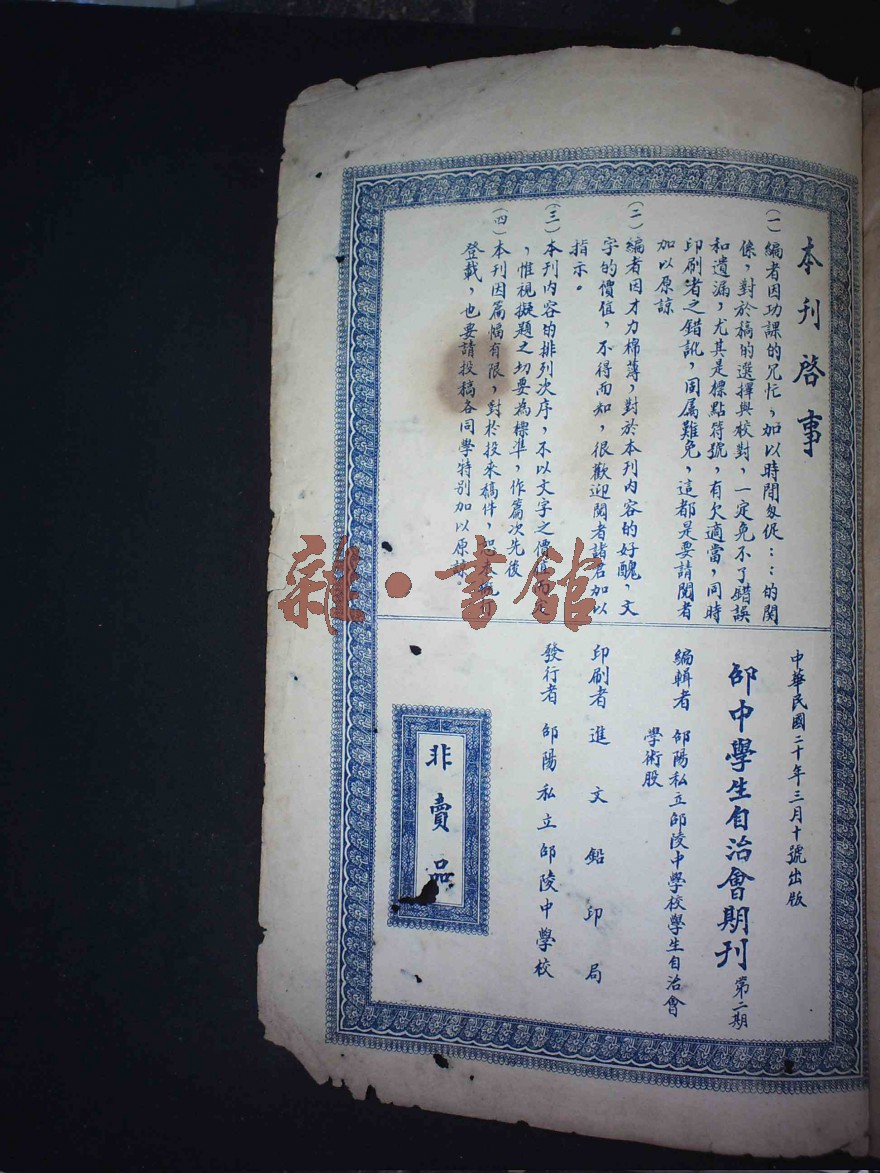 本刊啓事
(一)編者因功課的冗忙,加以時間匆促……的関
係,對於稿的選擇與校對,一定免不了錯誤
和遺漏,尤其是標點符號,有欠適當,同時
印刷者之錯訛,同属難免,這都是要請閱者
加以原諒
(二)編者因才力棉薄,對於本刊內容的好醜,文
字的價值,不得而知,很歡迎閱者諸君加以
指示。
(三)本刊內容的排列次序,不以文字之價值而定
,惟視擬題之切要為標準,作篇次先後
(四)本刊因篇幅有限,對於投来稿件,
登載,也要請投稿各同學特別加以原諒。
中華民國二十年三月十號出版
邵中學生自治會期刊 第二期
編輯者 邵陽私立邵陵中學校學生自治會
學術股
印刷者 進文鉛印局
發行者 邵陽私立邵陵中學校
非賣品
雜·書館